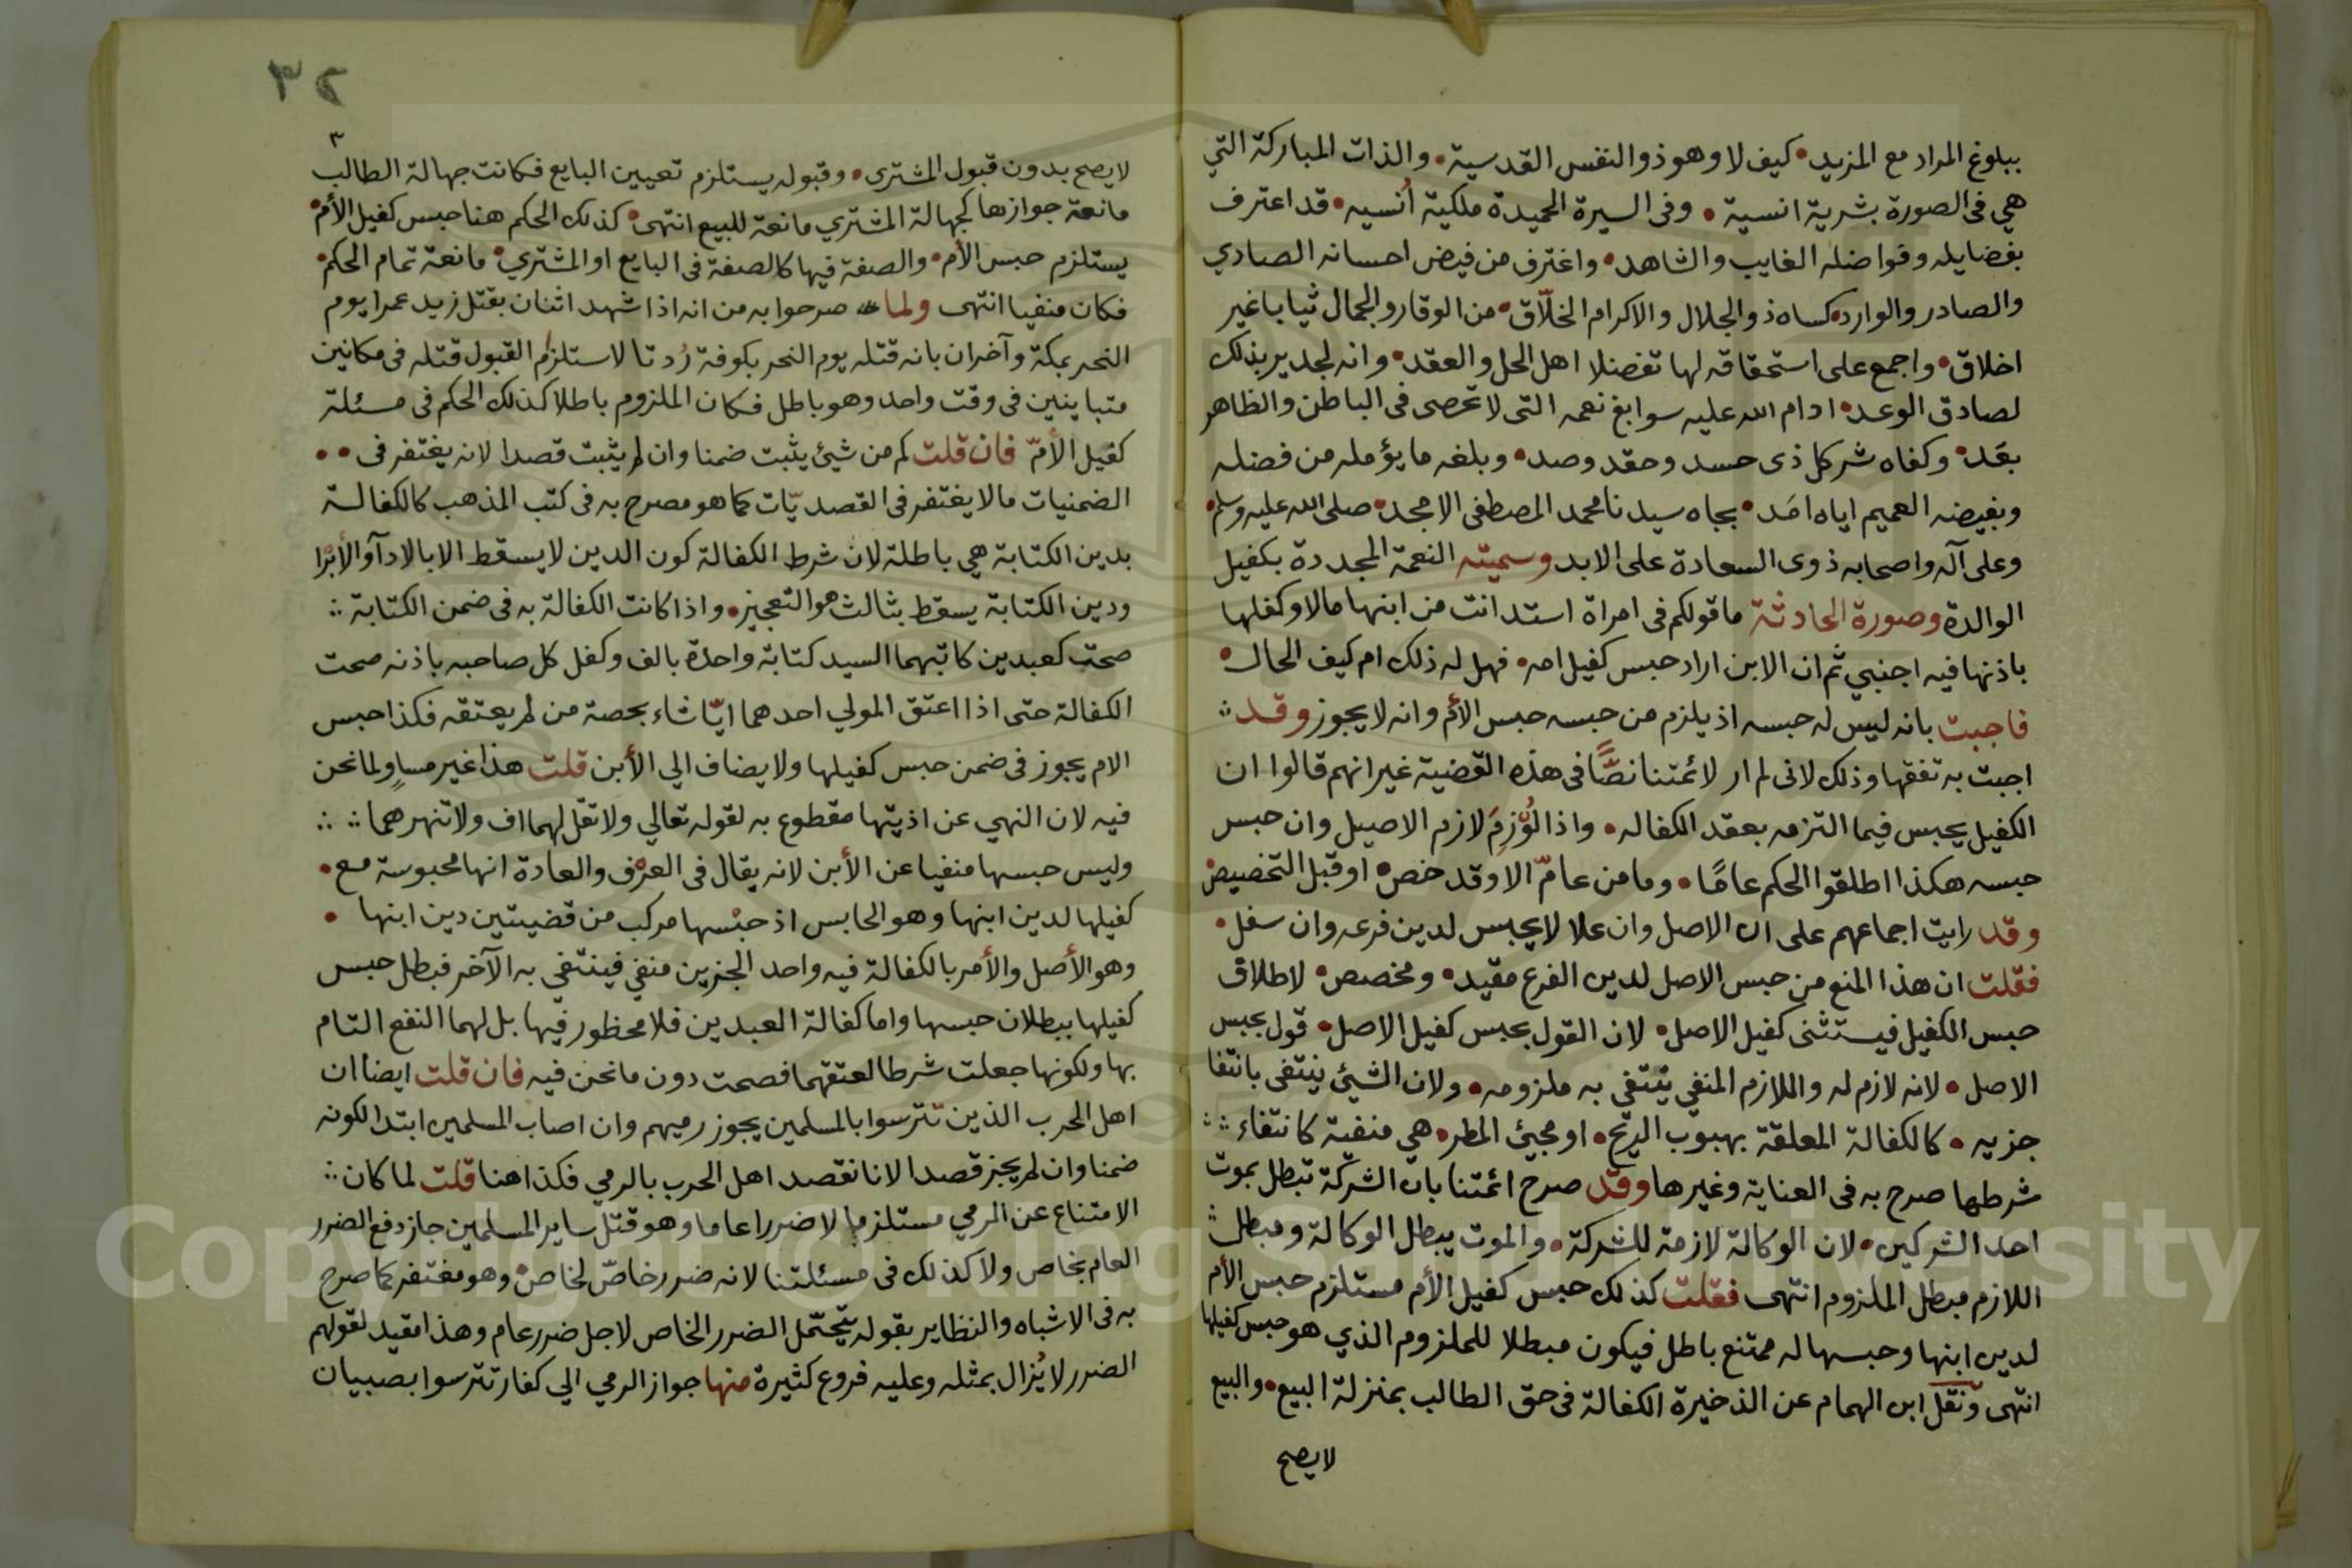 ببلوغ المراد مع المزيد • كيف لا وهو ذو النفس القدسية • والذات المباركة التي
هي في الصورة بشرية انسية • وفى السيرة الحميدة ملكية أنسيه • قد اعترف
بفضايله وفواضله الغايب والشاهد • واغترف من فيض احسانه الصادي
والصادر والوارد • كساه ذو الجلال والاكرام الخلّاق • من الوقار والجمال ثيابا غير
اخلاق • واجمع على استحقاقه لها تفضلا اهل الحل والعقد • وانه لجدير بذلك
لصادق الوعد • ادام الله عليه سوابغ نعمه التى لا تحصى فى الباطن والظاهر
بعَد • وكفاه شر كل ذى حسد وحقد وصد • وبلغه ما يؤمله من فضله
وبفيضه العميم اياه امَد • بجاه سيدنا محمد المصطفى الامجد • صلى الله عليه وسلم •
وعلى آله واصحابه ذوى السعادة على الابد وسميته النعمة المجددة بكفيل
الوالدة وصورة الحادثة ما قولكم فى امراة استدانت من ابنها مالا وكفلها
باذنها فيه اجنبي ثم ان الابن اراد حبس كفيل امه • فهل له ذلك ام كيف الحال •
فاجبت بانه ليس له حبسه اذ يلزم من حبسه حبس الأم وانه لا يجوز وقد
اجبت به تفقها وذلك لانى لم ار لائمتنا نصًّا فى هذه القضية غير انهم قالوا ان
الكفيل يحبس فيما التزمه بعقد الكفاله • واذا لُوزِمَ لازم الاصيل وان حبس
حبسه هكذا اطلقوا الحكم عامًا • وما من عامّ الا وقد خص • او قبل التخصيص
وقد رايت اجماعهم على ان الاصل وان علا لا يحبس لدين فرعه وان سفل •
فقلت ان هذا المنع من حبس الاصل لدين الفرع مقيد • ومخصص • لاطلاق
حبس الكفيل فيستثنى كفيل الاصل • لان القول بحبس كفيل الاصل • قول بحبس
الاصل • لانه لازم له واللازم المنفي ينتفي به ملزومه • ولان الشيئ ينتفى بانتفا
جزيه • كالكفالة المعلقة بهبوب الريح • او مجيئ المطر • هي منفية كانتفاء
شرطها صرح به فى العناية وغيرها وقد صرح ائمتنا بان الشركة تبطل بموت
احد الشركين • لان الوكالة لازمة للشركة • والموت يبطل الوكالة ومبطل
اللازم مبطل الملزوم انتهى فقلت كذلك حبس كفيل الأم مستلزم حبس الأم
لدين ابنها وحبسها له ممتنع باطل فيكون مبطلا للملزوم الذي هو حبس كفيلها
انتهى ونقل ابن الهمام عن الذخيرة الكفالة فى حق الطالب بمنزلة البيع • والبيع
لا يصح
٣٢
٣
لا يصح بدون قبول المشترى • وقبوله يستلزم تعيين البايع فكانت جهالة الطالب
مانعة جوازها كجهالة المشتري مانعة للبيع انتهى • كذلك الحكم هنا حبس كفيل الأم •
يستلزم حبس الأم • والصفة فيها كالصفة فى البايع او المشتري • مانعة تمام الحكم •
فكان منفيا انتهى ولما صرحوا به من انه اذا شهد اثنان بقتل زيد عمرا يوم
النحر بمكة وآخران بانه قتله يوم النحر بكوفة رُدتا لاستلزام القبول قتله فى مكانين
متباينين فى وقت واحد وهو باطل فكان الملزوم باطلا كذلك الحكم فى مسئلة
كفيل الأمّ فان قلت كم من شيئ يثبت ضمنا وان لم يثبت قصدا لانه يغتفر فى • •
الضمنيات مالا يغتفر فى القصديّات كما هو مصرح به فى كتب المذهب كالكفالة
بدين الكتابة هي باطلة لان شرط الكفالة كون الدين لا يسقط الا بالادآ او الأبرا
ودين الكتابة يسقط بثالث هو التعجيز • واذا كانت الكفالة به فى ضمن الكتابة
صحت كعبدين كاتبهما السيد كتابة واحدة بالف وكفل كل صاحبه باذنه صحت
الكفالة حتى اذا اعتق المولي احدهما ايّا شاء بحصة من لم يعتقه فكذا حبس
الام يجوز فى ضمن حبس كفيلها ولا يضاف الي الأبن قلت هذا غير مساوٍ لما نحن
فيه لان النهي عن اذيتها مقطوع به لقوله تعالي ولا تقل لهما اف ولا تنهرهما
وليس حبسها منفيا عن الأبن لانه يقال فى العرف والعادة انها محبوسة مع •
كفيلها لدين ابنها وهو الحابس اذ حبْسها مركب من قضيتين دين ابنها •
وهو الأصل والأمر بالكفالة فيه واحد الجزين منفي فينتفي به الآخر فبطل حبس
كفيلها ببطلان حبسها واما كفالة العبدين فلا محظور فيها بل لهما النفع التام
بها ولكونها جعلت شرطا لعتقهما فصحت دون ما نحن فيه فان قلت ايضا ان
اهل الحرب الذين تترسوا بالمسلمين يجوز رميهم وان اصاب المسلمين ابتدا لكونه
ضمنا وان لم يجز قصدا لانا نقصد اهل الحرب بالرمي فكذا هنا قلت لما كان
الامتناع عن الرمي مستلزما لا ضررا عاما وهو قتل ساير المسلمين جاز دفع الضرر
العام بخاص ولا كذلك فى مسئلتنا لانه ضرر خاصّ لخاص • وهو مغتفر كما صرح
به فى الاشباه والنظاير بقوله يتحمّل الضرر الخاص لاجل ضرر عام وهذا مقيد لقولهم
الضرر لا يُزال بمثله وعليه فروع كثيرة منها جواز الرمي الي كفار تترسوا بصبيان
Copyright © King Saud University